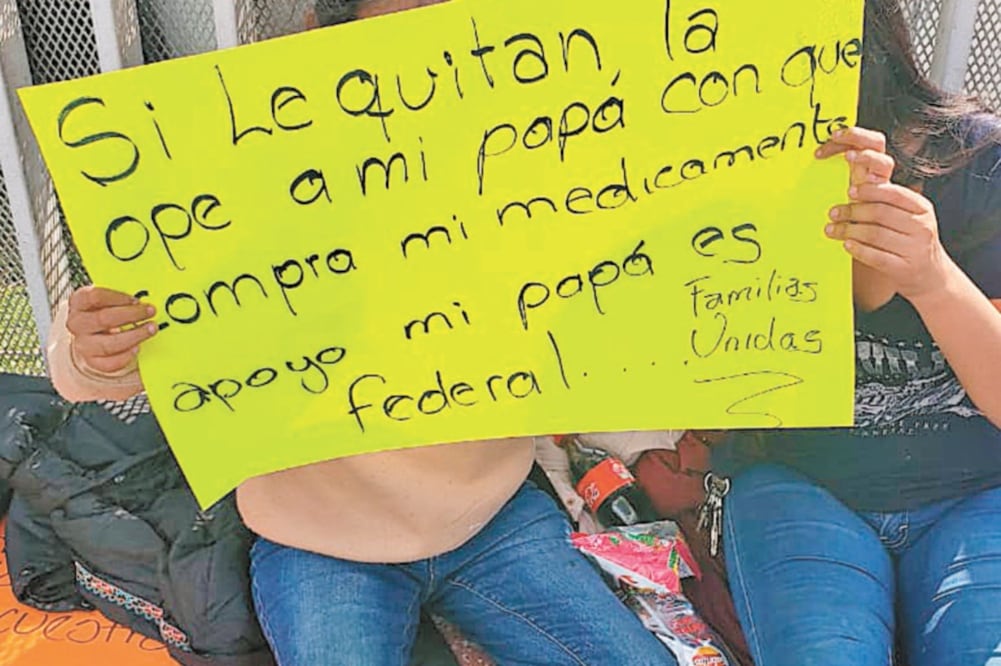 Si Le quitan la
ope a mi papá con que
compra mi medicamento
apoyo mi papá es
federal.....
Familias
Unidas